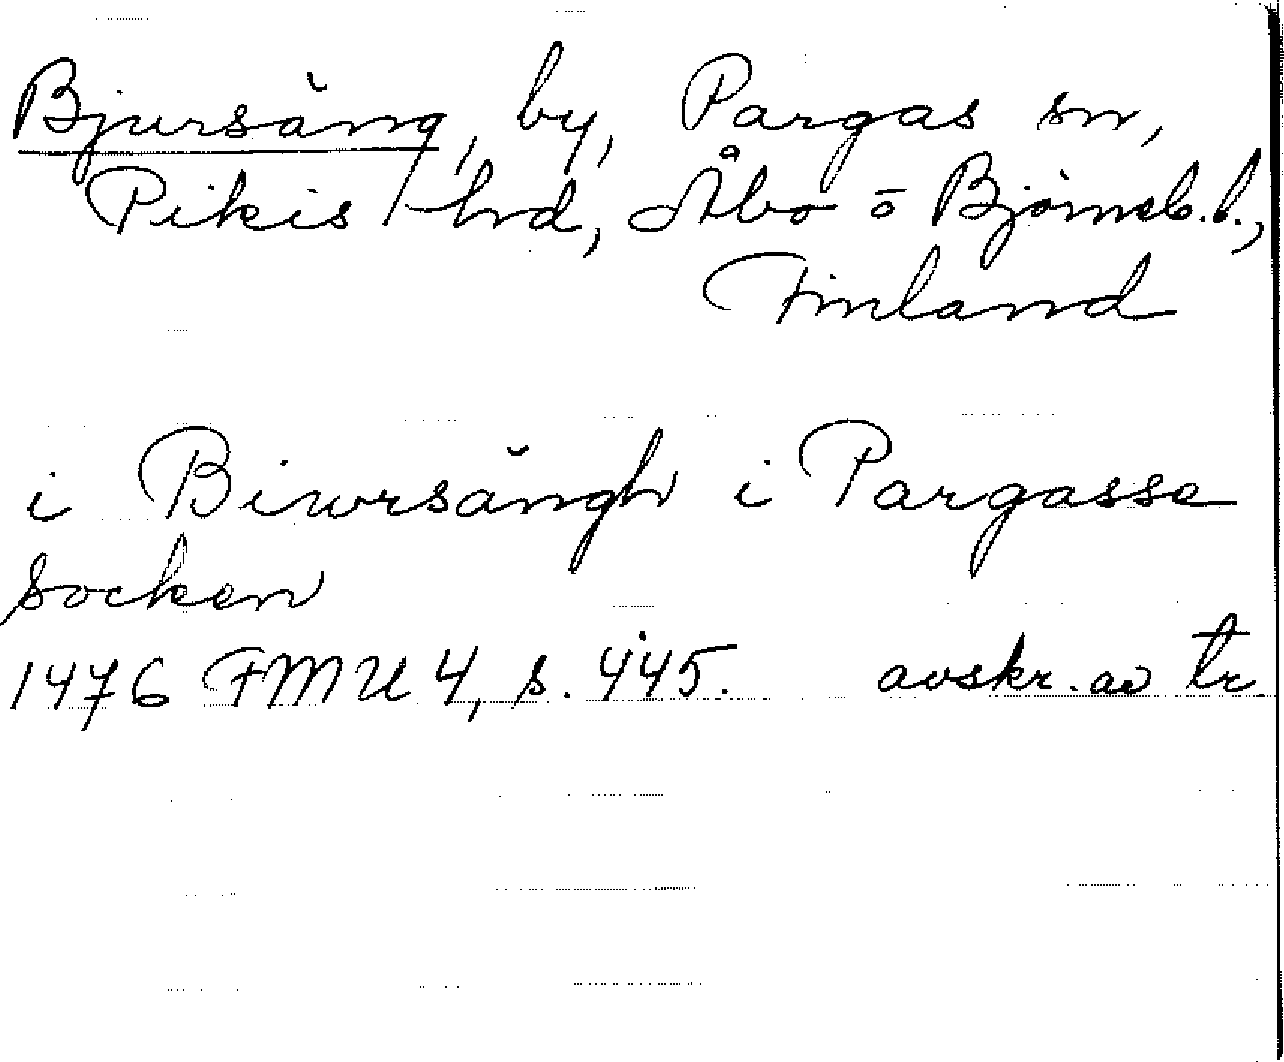 Bjursäng, by, Pargas sn,
Pikis hrd, Åbo o Björneb. l.,
Finland
i Biwrsängh i Pargasse
socken
1476 FMU 4, s. 445. avskr. av tr